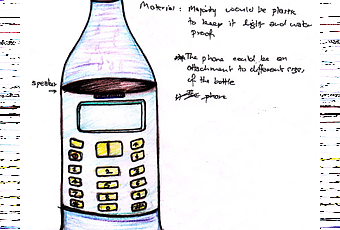 Material : Majority would be plastic
to keep it light and water
proof
The phone could be an
attachment to different sizes
of the bottle
speaker
phone